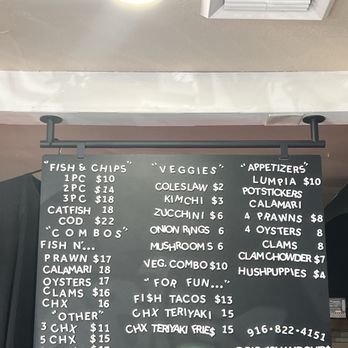 "FISH & CHIPS"
1PC $10
2PC $14
3PC $18
CATFISH 18
COD $22
"COMBOS"
FISH N'...
PRAWN $17
CALAMARI 18
OYSTERS 17
CLAMS $16
CHX 16
"OTHER"
3 CHX $11
5 CHX $15
"VEGGIES"
COLESLAW $2
KIMCHI $3
ZUCCHINI $6
ONION RINGS 6
MUSHROOMS 6
VEG. COMBO $10
"FOR FUN..."
FISH TACOS $13
CHX TERIYAKI 15
CHX TERIYAKI FRIES 15
"APPETIZERS"
LUMPIA $10
POTSTICKERS
CALAMARI
4 PRAWNS $8
4 OYSTERS 8
CLAMS 8
CLAM CHOWDER $7
HUSHPUPPIES $4
916-822-4151